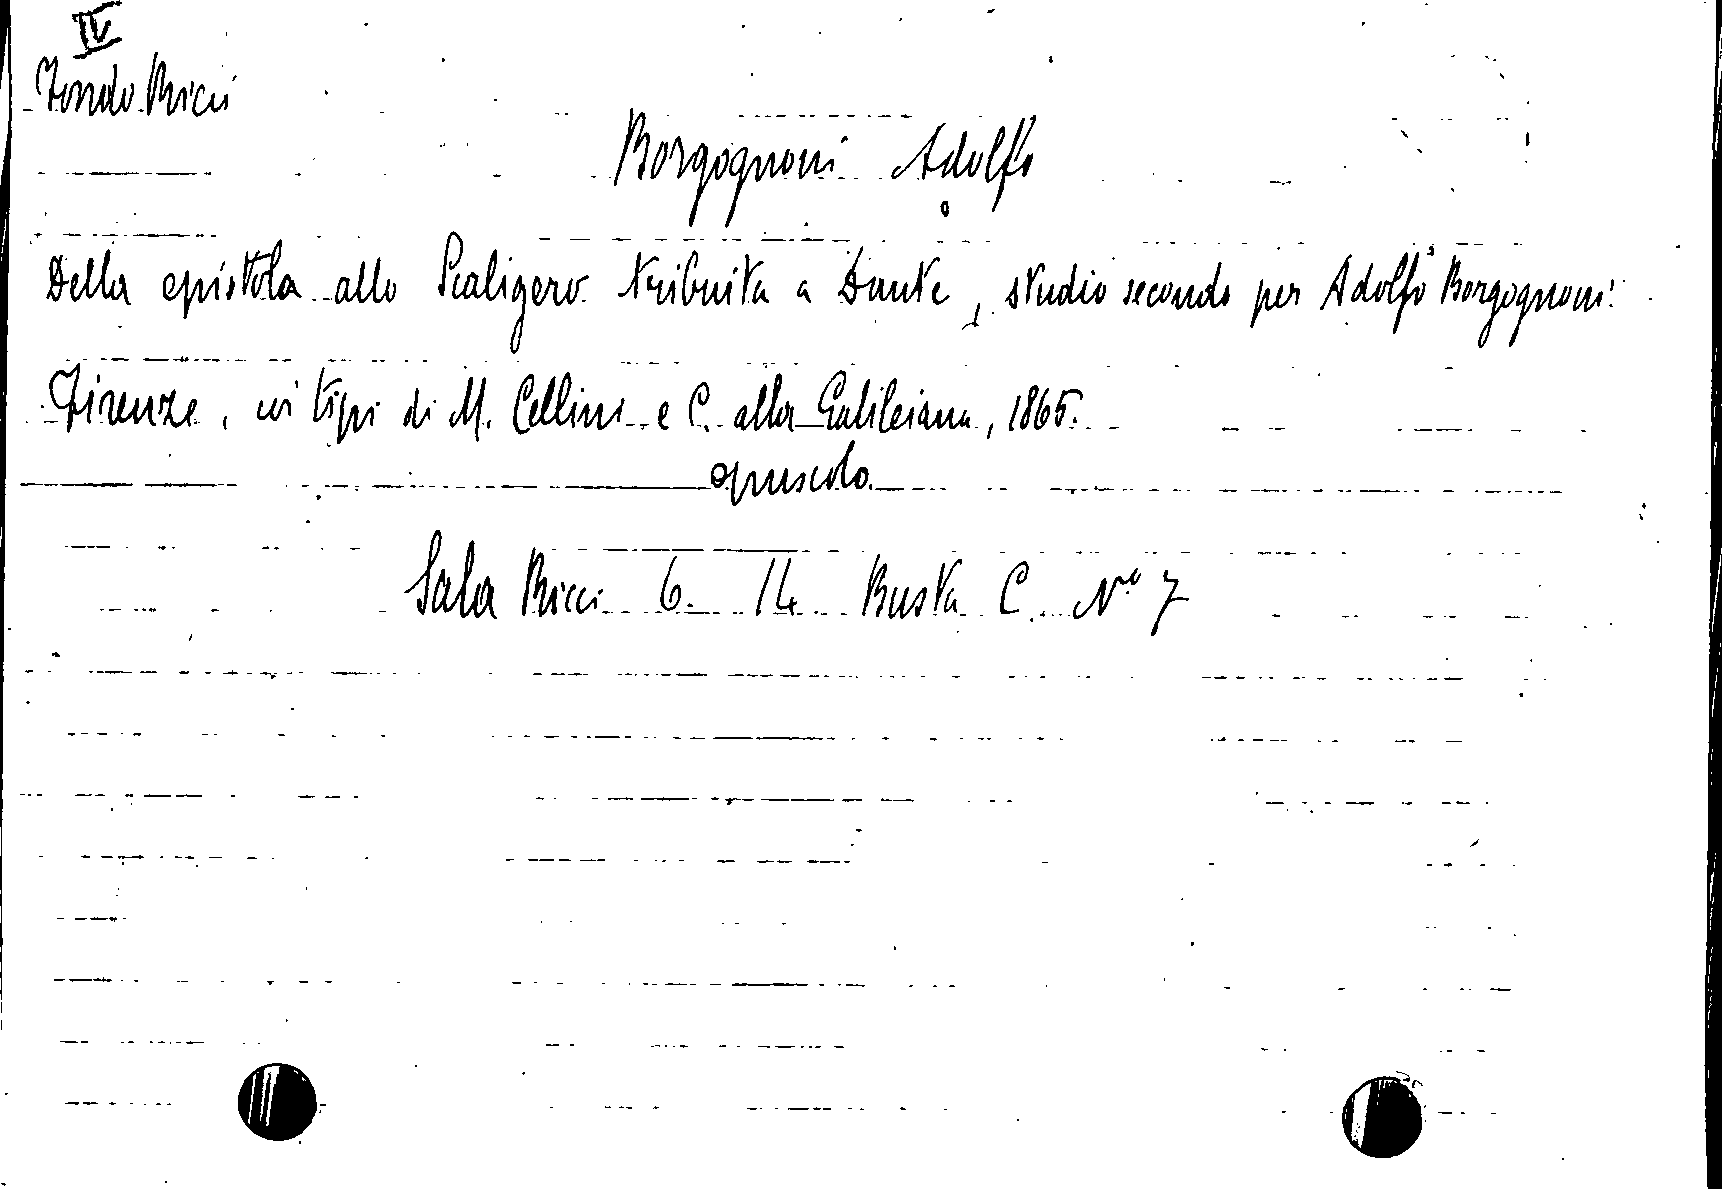 IV
Fondo Ricci
Borgognoni Adolfo
Della epistola allo Scaligero tribuita a Dante, studio secondo per Adolfo Borgognoni.
Firenze, coi tipi di M. Cellini e C. alla Galileiana, 1865.
opuscolo
Sala Ricci 6. 14 Busta C. No 7